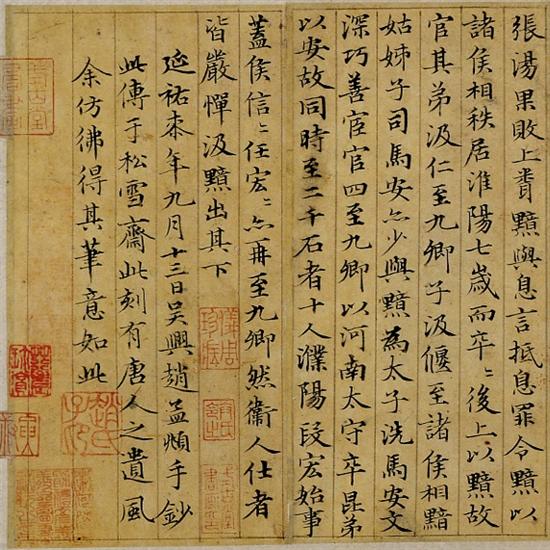 張湯果敗上責黯與息言抵息罪令黯以
諸侯相秩居淮陽七歲而卒〻後上以黯故
官其弟汲仁至九卿子汲偃至諸侯相黯
姑姊子司馬安亦少與黯為太子洗馬安文
深巧善宦官四至九卿以河南太守卒昆弟
以安故同時至二千石者十人濮陽段宏始事
蓋侯信〻任宏〻亦再至九卿然衛人仕者
皆嚴憚汲黯出其下
延祐柒年九月十三日吳興趙孟頫手鈔
此傳于松雪齋此刻有唐人之遺風
余仿彿得其筆意如此
趙氏子昂